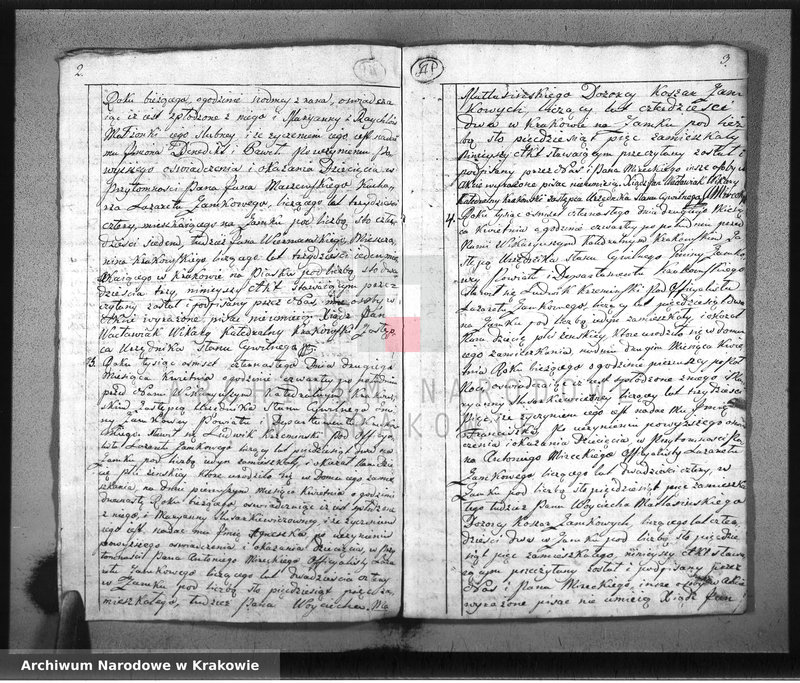 2.
Roku bieżącego, ogodzinie siodmey z rana, oswiadcza
iąc iż iest spłodzone z niego i Maryanny z
Małżonki iego slubney i że życzeniem iego iest nadać
mu Jmiona Benedikt i Paweł Po uczynieniu Po
wyższego oswiadczenia i okazania Dziecięcia w
Przytomnosci Pana Jana Kucha
rza Lazaretu Zamkowego, liczącego lat trzydzieści
cztery, mieszkaiącego na Zamku pod liczbą sto czter
dzieści siedem, tudzież Jana Miesza
nina krakowskiego liczącego lat trzydzieści iedem miesz
kaiącego w krakowie na Piasku pod liczbą sto dwa
dzieścia trzy, ninieyszy Akt stawaiącym prze
czytany został i podpisany przez Nas osoby w
Akcie wyrażone pisać nie umieią Xiądz Jan
Wacławiak Wikary Katedralny krakowski Zastęp
ca Urzędnika Stanu Cywilnego
3. Roku tysiąc osmset czternastego Dnia drugiego
Miesiąca kwietnia ogodzinie czwartey po południu
przed Nami Wikaryuszem Katedralnym krakow
skim Zastępcą Urzędnika Stanu Cywilnego
ny Zamkowey Powiatu i Departamentu krakow
skiego stawił się Ludwik Krzeminski pod Officya
lista Lazaretu Zamkowego liczący lat pięćdziesiąt dwa na
Zamku pod liczbą zamieszkały, i okazał Nam dziecię
płci żenskiey, które urodziło się w Domu iego zamie
szkania, na dniu pierwszym miesiąca kwietnia ogodzinie
dwunastey Roku bieżącego oswiadczaiąc iż iest spłodzone
z niego, i Maryanny Slusarkiewiczowney, i że życzeniem
iego iest nadać mu Jmię Agnieszka po uczynieniu
powyższego oswiadczenia i okazania Dziecięcia, w Przy
tomnosci Pana Antoniego Mireckiego Officyalisty Laza
retu Zamkowego liczącego lat dwadzieścia cztery
w Zamku pod liczbą sto pięćdziesiąt pięć za
mieszkałego, tudzież Pana Woyciecha Ma
3.
Matłasinskiego Dozorcy Koszar Zam
kowych, liczący lat czterdzieści
dwa w krakowie na Zamku pod licz
bą sto pięćdziesiąt pięć zamieszkały
ninieyszy Akt stawaiącym przeczytany został i
podpisany przez Nas i Pana Mireckiego insze osoby w
Akcie wyrażone pisać nie umieią. Xiądz Jan Wacławiak Wikary
Katedralny krakowski Zastępca Urzędnika Stanu Cywilnego Mirecki
4. Roku tysiąc osmset czternastego dnia drugiego Miesią
ca kwietnia ogodzinie czwartey po południu przed
Nami Wikaryuszem Katedralnym krakowskim Za
stępcą Urzędnika Stanu Cywilnego Gminy Zamko
wey Powiatu i Departamentu krakowskiego
stawił się Ludwik Krzeminski Pod Officyalista
Lazaretu Zamkowego, liczący lat pięćdziesiąt dwa
na Zamku pod liczbą zamieszkały i okazał
Nam dziecię płci żenskiey, które urodziło się w domu
iego zamieszkania, na dniu drugim Miesiąca kwie
tnia Roku bieżącego ogodzinie pierwszey po
Nocy, oswiadczaiąc iż iest spłodzone z niego i Ma
ryanny Slusarkiewiczowney liczącey lat trzydzieści
pięć, i że życzeniem iego iest nadać mu Jmię
Franciszka, Po uczynieniu powyższego oswiad
czenia i okazania Dziecięcia, w Przytomnosci Pa
na Antoniego Mireckiego Officyalisty Lazaretu
Zamkowego liczącego lat dwadzieścia cztery, w
Zamku pod liczbą sto pięćdziesiąt pięć zamieszka
łego tudzież Pana Woyciecha Matłasinskiego
Dozorcy Koszar Zamkowych, liczącego lat czter
dzieści dwa w Zamku pod liczbą sto pięćdzie
siąt pięć zamieszkałego, ninieyszy Akt stawa
iącym przeczytany został i podpisany przez
Nas i Pana Mireckiego, insze osoby w Akcie
wyrażone pisać nie umieią Xiądz Jan
ARCHIWUM NARODOWE
W KRAKOWIE
Archiwum Narodowe w Krakowie